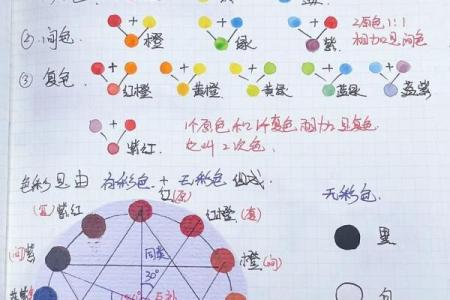 ② 间色 + 橙 + 绿 + 紫 2原色1:1
相加是间色
③ 复色 + 红橙 + 黄橙 + 黄绿 + 蓝绿 + 蓝紫
+ 紫红 1个原色和1个复色相加是复色
也叫2次色.
色彩是由 有彩色 + 无彩色 组成.
红(原) 无彩色.
紫红 红橙(复)
黑
(间)紫 同类 橙(间)
30°
180° 互补